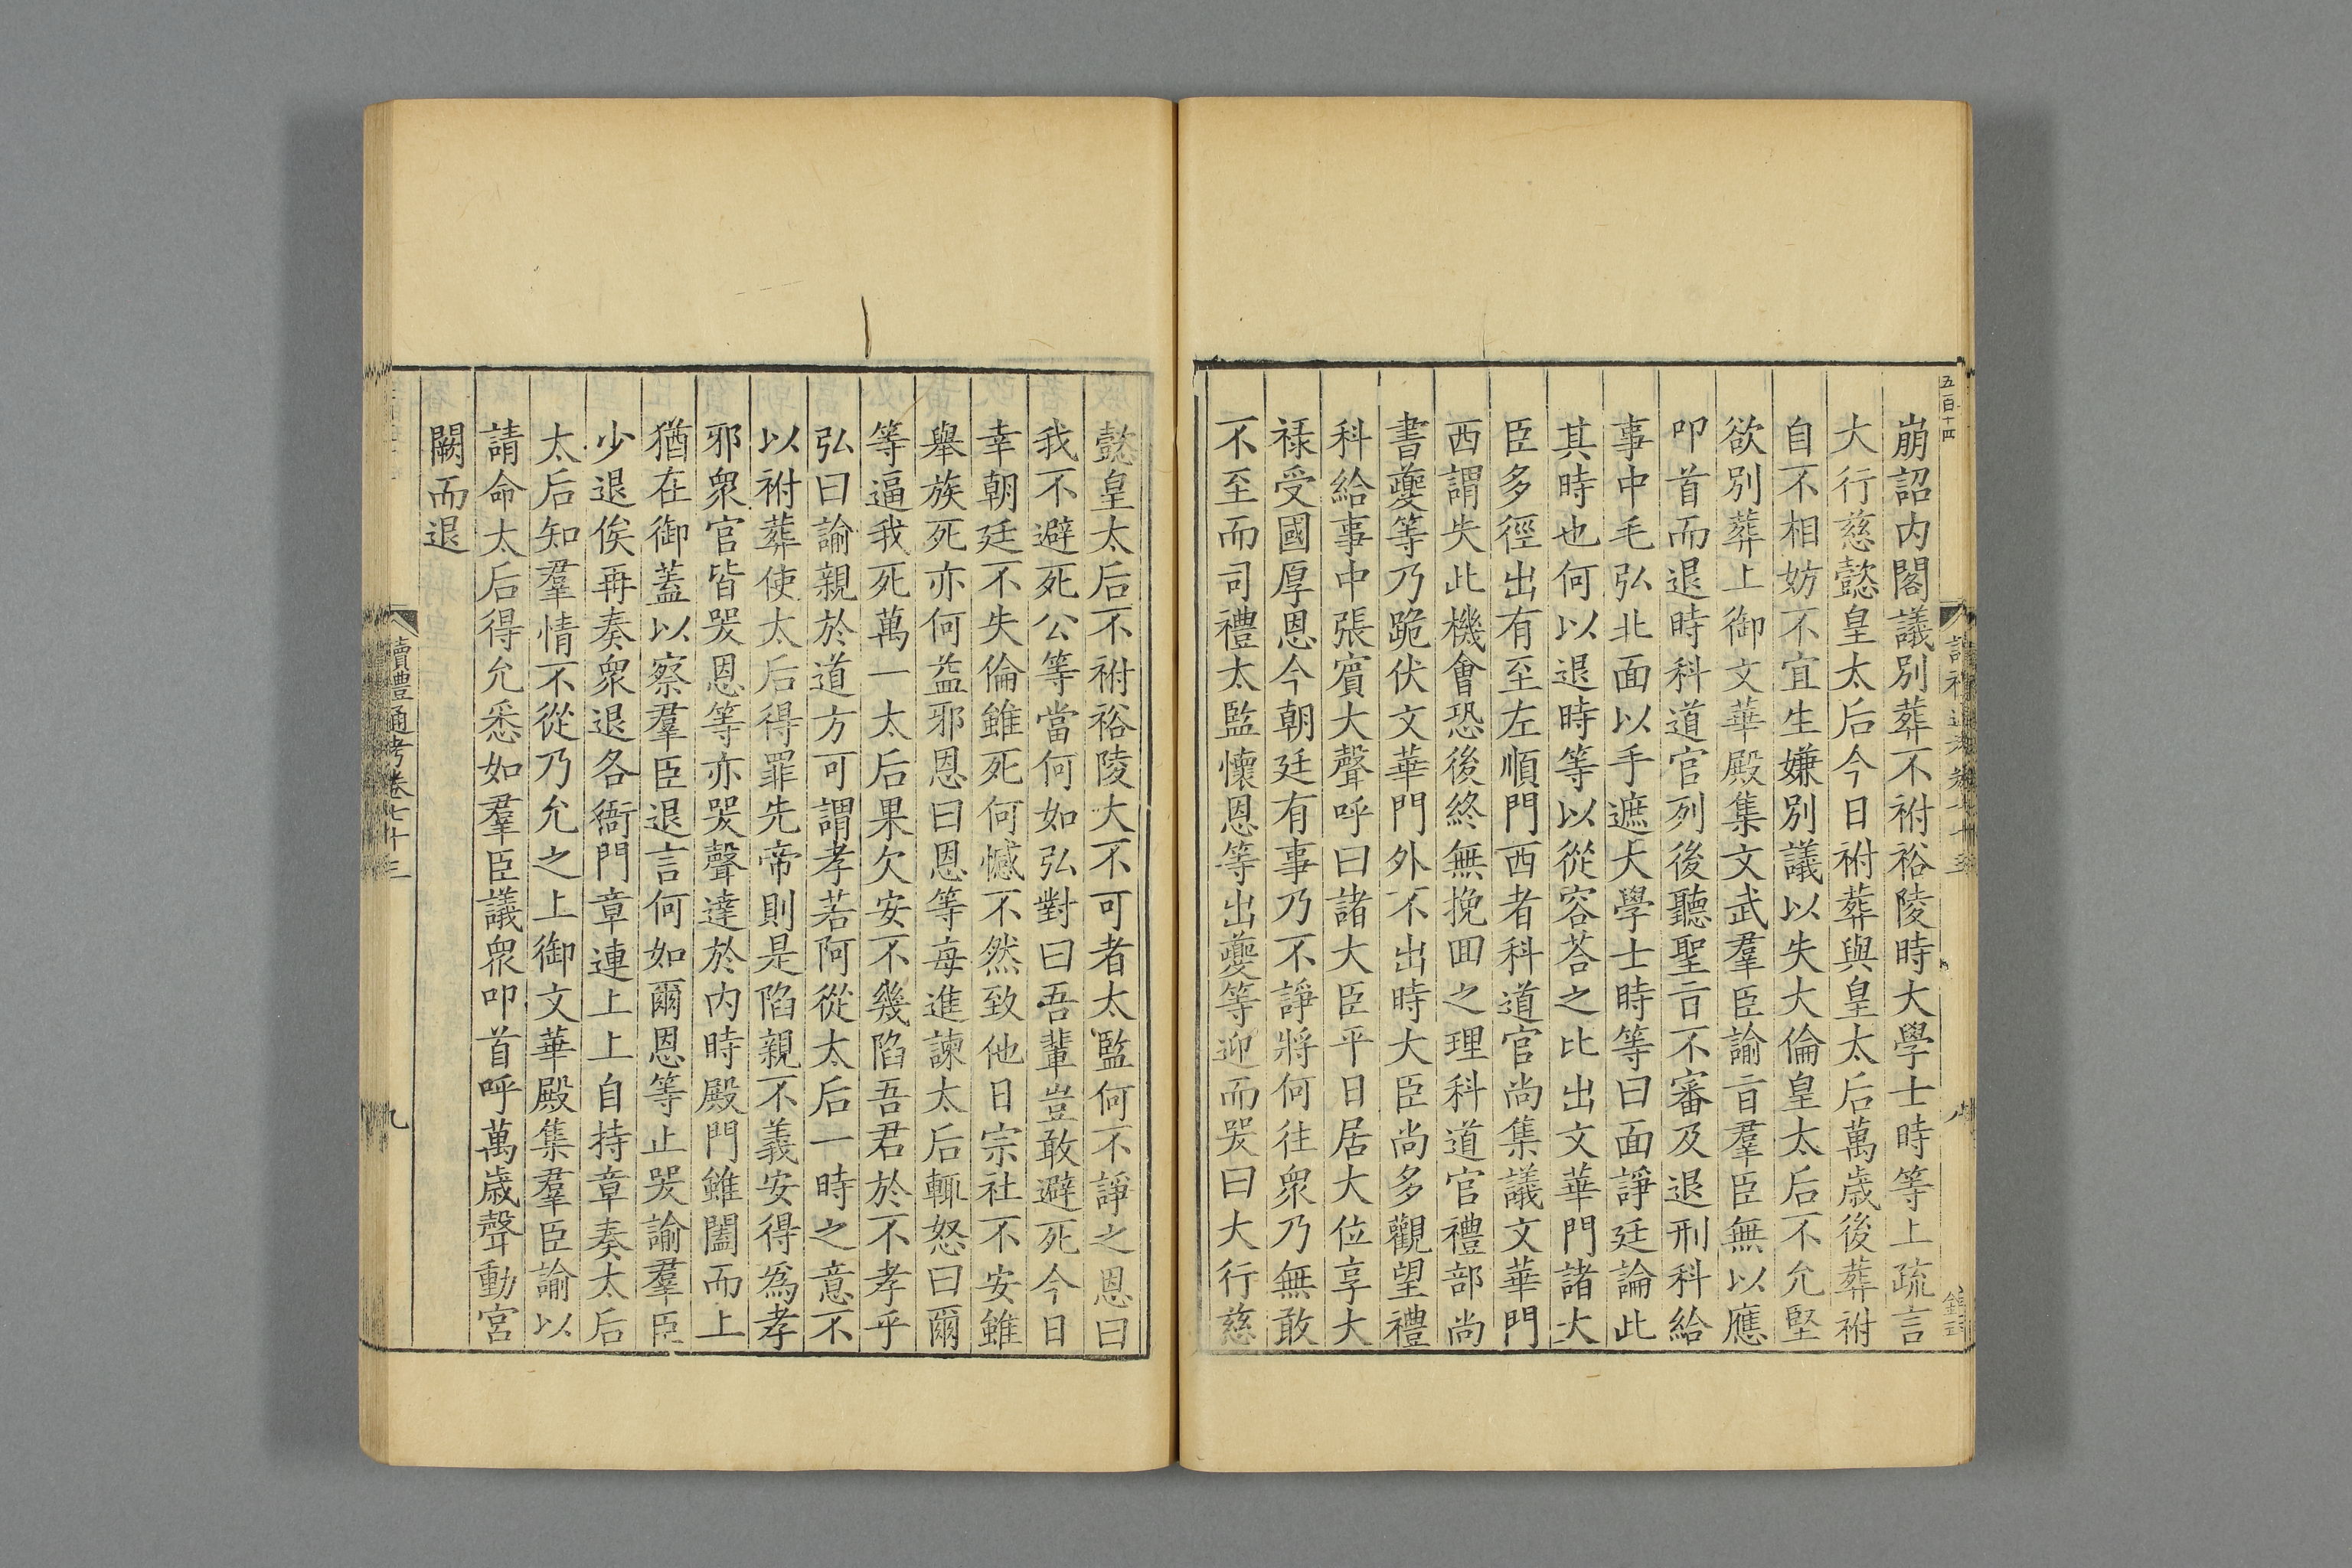 五百十四
崩詔内閣議別葬不祔裕陵時大學士時等上疏言
大行慈懿皇太后今日祔葬與皇太后萬歲後葬祔
自不相妨不宜生嫌別議以失大倫皇太后不允堅
欲別葬上御文華殿集文武羣臣諭㫖羣臣無以應
叩首而退時科道官列後聽聖㫖不審及退刑科給
事中毛弘北面以手遮大學士時等曰面諍廷論此
其時也何以退時等以從容荅之比出文華門諸大
臣多徑出有至左順門西者科道官尚集議文華門
西謂失此機會恐後終無挽囬之理科道官禮部尚
書夔等乃跪伏文華門外不出時大臣尚多觀望禮
科給事中張賔大聲呼曰諸大臣平日居大位享大
祿受國厚恩今朝廷有事乃不諍將何徃衆乃無敢
不至而司禮太監懷恩等出夔等迎而哭曰大行慈
懿皇太后不祔裕陵大不可者太監何不諍之恩曰
我不避死公等當何如弘對曰吾輩豈敢避死今日
幸朝廷不失倫雖死何憾不然致他日宗社不安雖
舉族死亦何益邪恩曰恩等毎進諫太后輒怒曰爾
等逼我死萬一太后果欠安不幾陷吾君於不孝乎
弘曰諭親於道方可謂孝若阿從太后一時之意不
以祔葬使太后得罪先帝則是陷親不義安得爲孝
邪衆官皆哭恩等亦哭聲達於内時殿門雖闔而上
猶在御蓋以察羣臣退言何如爾恩等止哭諭羣臣
少退俟再奏衆退各衙門章連上上自持章奏太后
太后知羣情不從乃允之上御文華殿集羣臣諭以
請命太后得允悉如羣臣議衆叩首呼萬歲聲動宮
闕而退
讀禮通考卷七十三
九